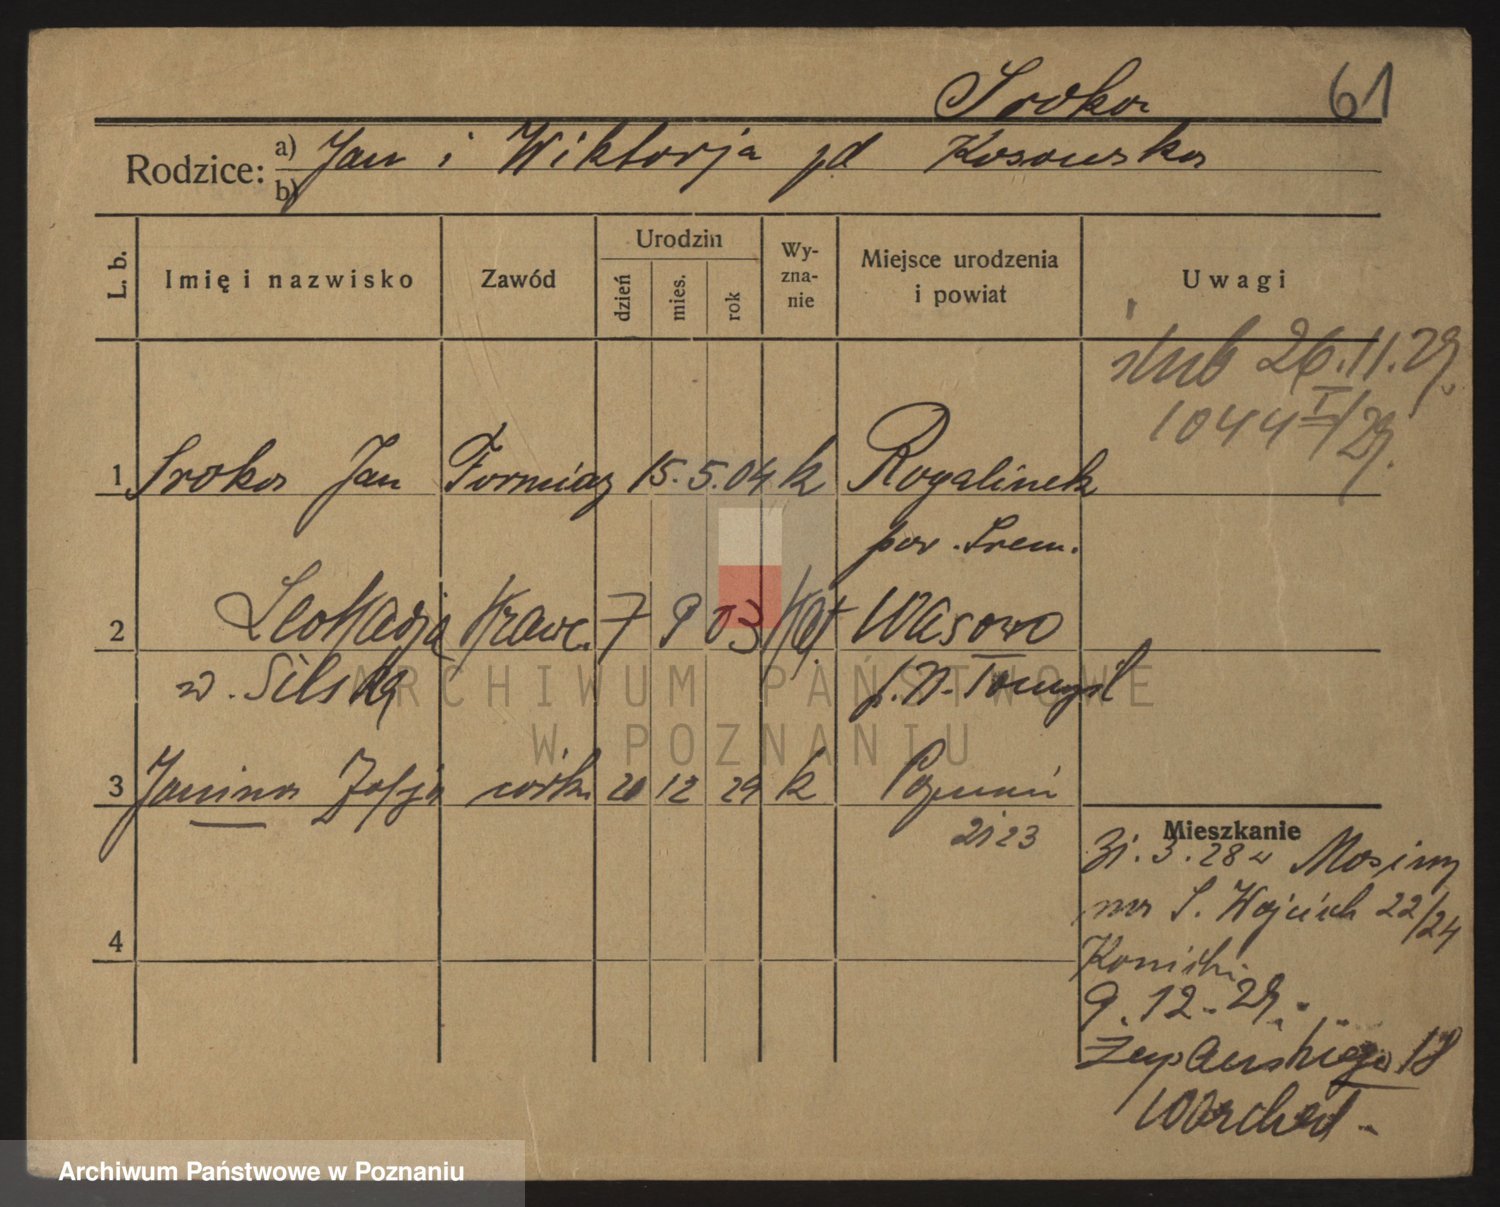 Sroka 61
Rodzice: a) Jan i Wiktorja zd Kosowska
b)
L. b. Imię i nazwisko Zawód Urodzin dzień mies. rok Wyznanie Miejsce urodzenia i powiat Uwagi
ślub 26.11.29.
1044 I/29.
1 Sroka Jan Formiarz 15. 5. 04 k Rogalinek
pow. Śrem.
2 Leokadja Krawc. 7 9 03 kat Wąsowo
w. Silska p. N. Tomyśl
3 Janina Zofja córka 20 12 29 k Poznań
2123
Mieszkanie
31. 3. 28 z Mosiny
na Ś. Wojciech 22/24
4
9. 12. 29.
Żupańskiego 18
ARCHIWUM PAŃSTWOWE
W POZNANIU
Archiwum Państwowe w Poznaniu